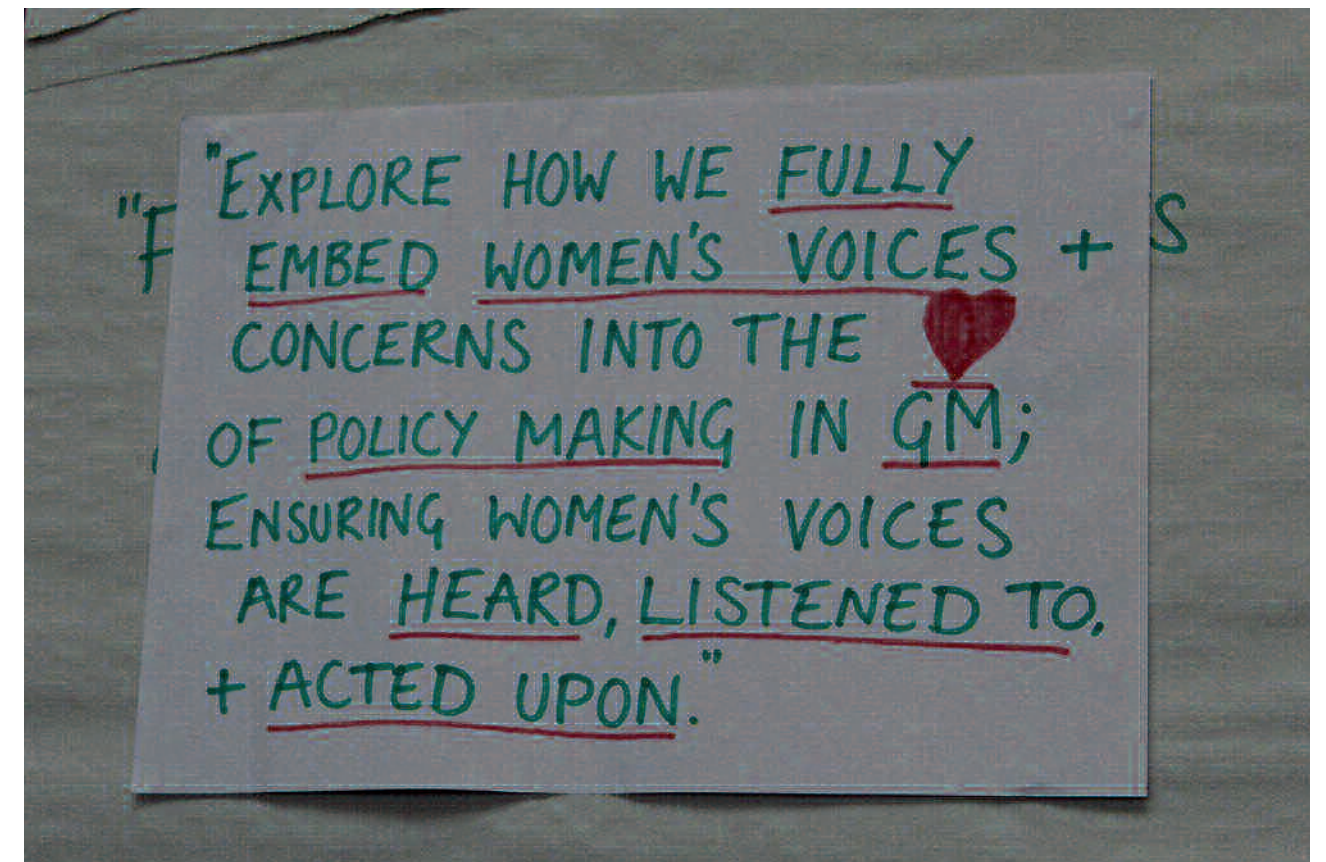 "EXPLORE HOW WE FULLY
EMBED WOMEN'S VOICES +
CONCERNS INTO THE ♥
OF POLICY MAKING IN GM;
ENSURING WOMEN'S VOICES
ARE HEARD, LISTENED TO,
+ ACTED UPON."